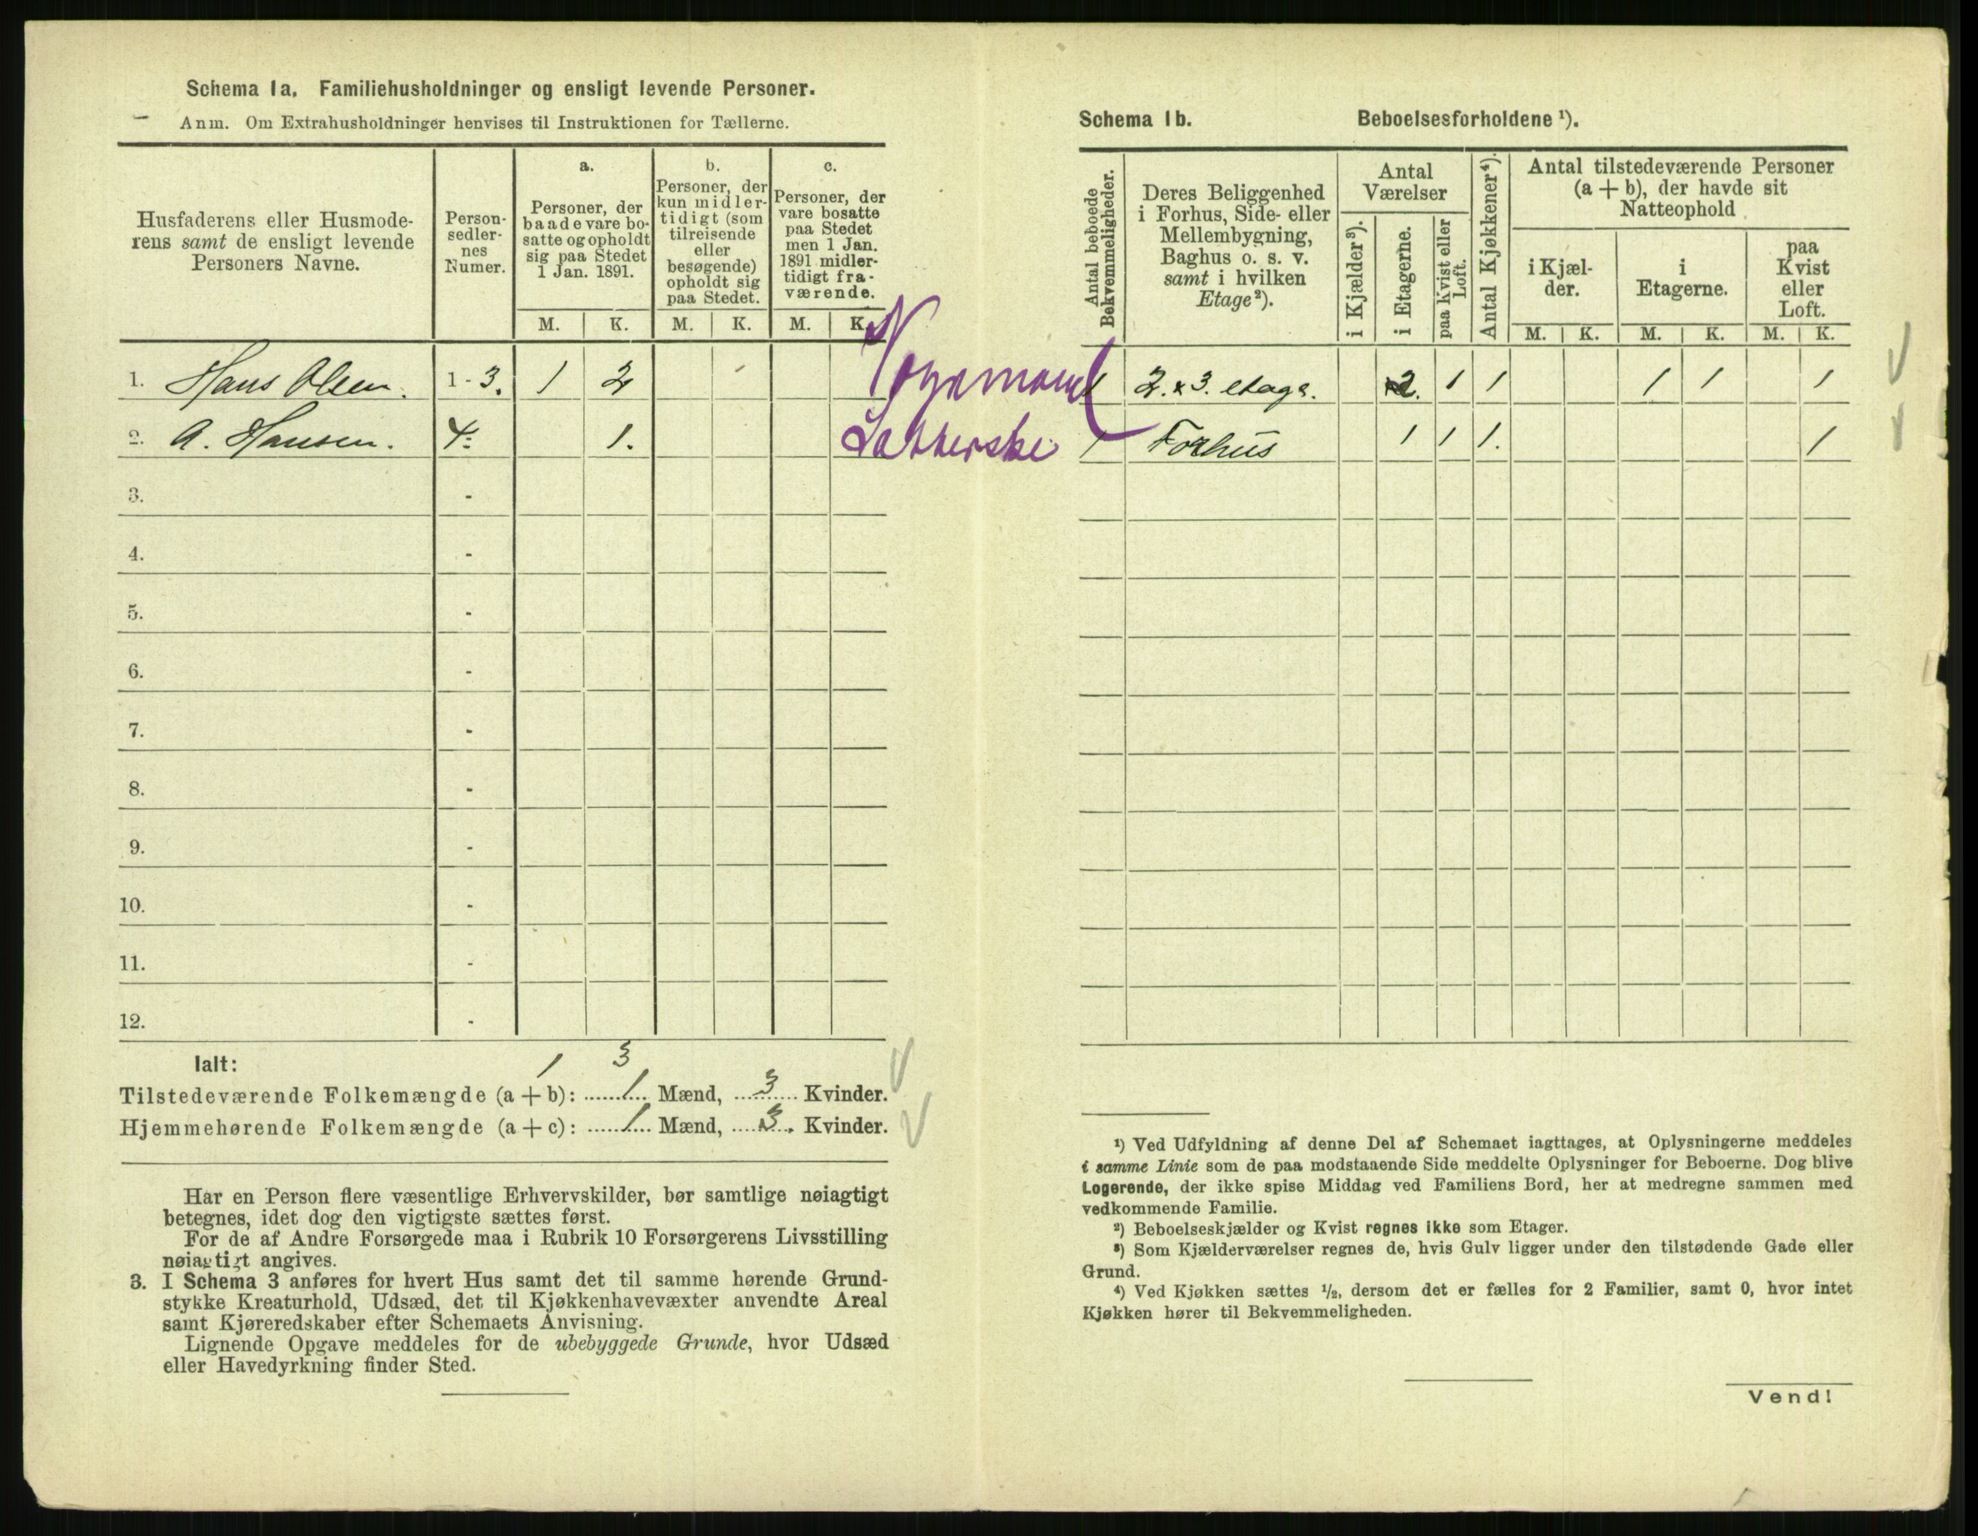 Schema 1a. Familiehusholdninger og ensligt levende Personer.
Anm. Om Extrahusholdninger henvises til Instruktionen for Tællerne.
Husfaderens eller Husmode-
rens samt de ensligt levende
Personers Navne.
Person-
sedler-
nes
Numer.
a.
Personer, der
baade vare bo-
satte og opholdt
sig paa Stedet
1 Jan. 1891.
b.
Personer, der
kun midler-
tidigt (som
tilreisende
eller
besøgende)
opholdt sig
paa Stedet.
c.
Personer, der
vare bosatte
paa Stedet
men 1 Jan.
1891 midler-
tidigt fra-
værende.
M. K. M. K. M. K.
1. Hans Olsen. 1-3. 1 2 Vognmand
2. A. Hansen. 4- 1.
3. -
4. -
5. -
6. -
7. -
8. -
9. -
10. -
11. -
12. -
Ialt: 1 3
Tilstedeværende Folkemængde (a + b): 1 Mænd, 3 Kvinder.
Hjemmehørende Folkemængde (a + c): 1 Mænd, 3 Kvinder.
Har en Person flere væsentlige Erhvervskilder, bør samtlige nøiagtigt
betegnes, idet dog den vigtigste sættes først.
For de af Andre Forsørgede maa i Rubrik 10 Forsørgerens Livsstilling
nøiagtigt angives.
3. I Schema 3 anføres for hvert Hus samt det til samme hørende Grund-
stykke Kreaturhold, Udsæd, det til Kjøkkenhavevæxter anvendte Areal
samt Kjøreredskaber efter Schemaets Anvisning.
Lignende Opgave meddeles for de ubebyggede Grunde, hvor Udsæd
eller Havedyrkning finder Sted.
Schema 1b. Beboelsesforholdene ¹).
Antal beboede
Bekvemmeligheder.
Deres Beliggenhed
i Forhus, Side- eller
Mellembygning,
Baghus o. s. v.
samt i hvilken
Etage²).
Antal
Værelser
i Kjælder³).
i Etagerne.
paa Kvist eller
Loft.
Antal Kjøkkener⁴).
Antal tilstedeværende Personer
(a + b), der havde sit
Natteophold
i Kjæl-
der.
i
Etagerne.
paa
Kvist
eller
Loft.
M. K. M. K. M. K.
1 2. & 3. etage. 2. 1 1 1 1 1
1 Forhus 1 1 1. 1
¹) Ved Udfyldning af denne Del af Schemaet iagttages, at Oplysningerne meddeles
i samme Linie som de paa modstaaende Side meddelte Oplysninger for Beboerne. Dog blive
Logerende, der ikke spise Middag ved Familiens Bord, her at medregne sammen med
vedkommende Familie.
²) Beboelseskjælder og Kvist regnes ikke som Etager.
³) Som Kjælderværelser regnes de, hvis Gulv ligger under den tilstødende Gade eller
Grund.
⁴) Ved Kjøkken sættes ½, dersom det er fælles for 2 Familier, samt 0, hvor intet
Kjøkken hører til Bekvemmeligheden.
Vend!